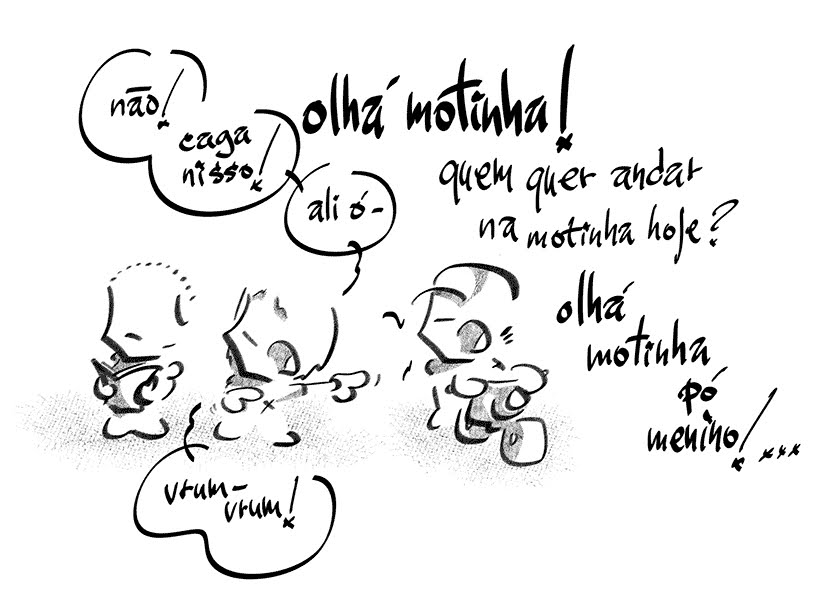 não!
caga
nisso!
ali ó-
olhá motinha!
quem quer andar
na motinha hoje?
olhá
motinha
pó
menino!...
vrum-
vrum!